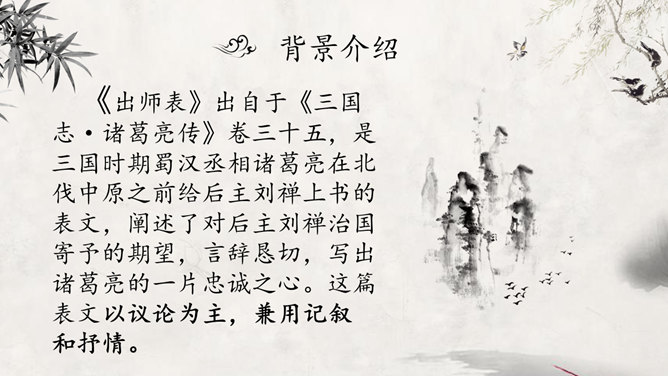 背景介绍
《出师表》出自于《三国
志·诸葛亮传》卷三十五，是
三国时期蜀汉丞相诸葛亮在北
伐中原之前给后主刘禅上书的
表文，阐述了对后主刘禅治国
寄予的期望，言辞恳切，写出
诸葛亮的一片忠诚之心。这篇
表文以议论为主，兼用记叙
和抒情。